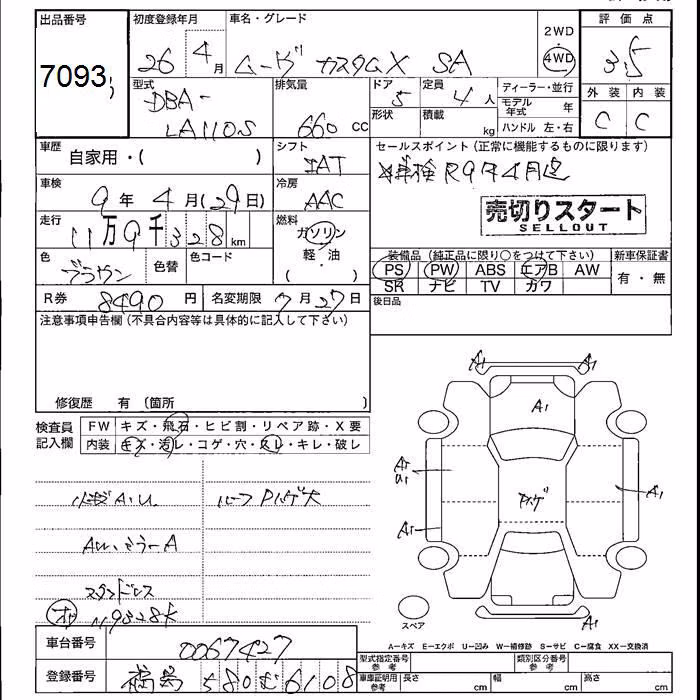 出品番号
7093
初度登録年月
26 4月
車名・グレード
ムーヴ カスタムX SA
2WD
・
4WD
評価点
3.5
外装 内装
C C
型式
DBA-
LA110S
排気量
660 cc
ドア 5
形状
定員 4人
積載 kg
ディーラー・並行
モデル年式 年
ハンドル 左・右
車歴 自家用・( )
シフト
IAT
セールスポイント(正常に機能するものに限ります)
車検R9年4月迄
売切りスタート
SELLOUT
車検 9年 4月(29日)
冷房
AAC
走行 11万9千328km
燃料
ガソリン
軽・油
( ・ )
色 ブラウン
色替
色コード
装備品(純正品に限り○をつけて下さい)
PS PW ABS エアB AW
SR ナビ TV カワ
新車保証書
有・無
R券 8490円
名変期限 7月27日
後日品
注意事項申告欄(不具合内容等は具体的に記入して下さい)
修復歴 有 (箇所 )
検査員
記入欄
FW キズ・飛石・ヒビ割・リペア跡・X要
内装 キズ・汚レ・コゲ・穴・スレ・キレ・破レ
A1.U.
ルーフPハゲ大
AW.ミラーA
スタッドレス
119328K
A1 A1
A1
A1
U1
Pハゲ
A1
A1
A1
スペア
A-キズ E-エクボ U-凹み W-補修跡 S-サビ C-腐食 XX-交換済
車台番号 0067427
型式指定番号
参考
類別区分番号
参考
登録番号 福島 580 む 6108
車庫証明用
参考
長さ cm
幅 cm
高さ cm